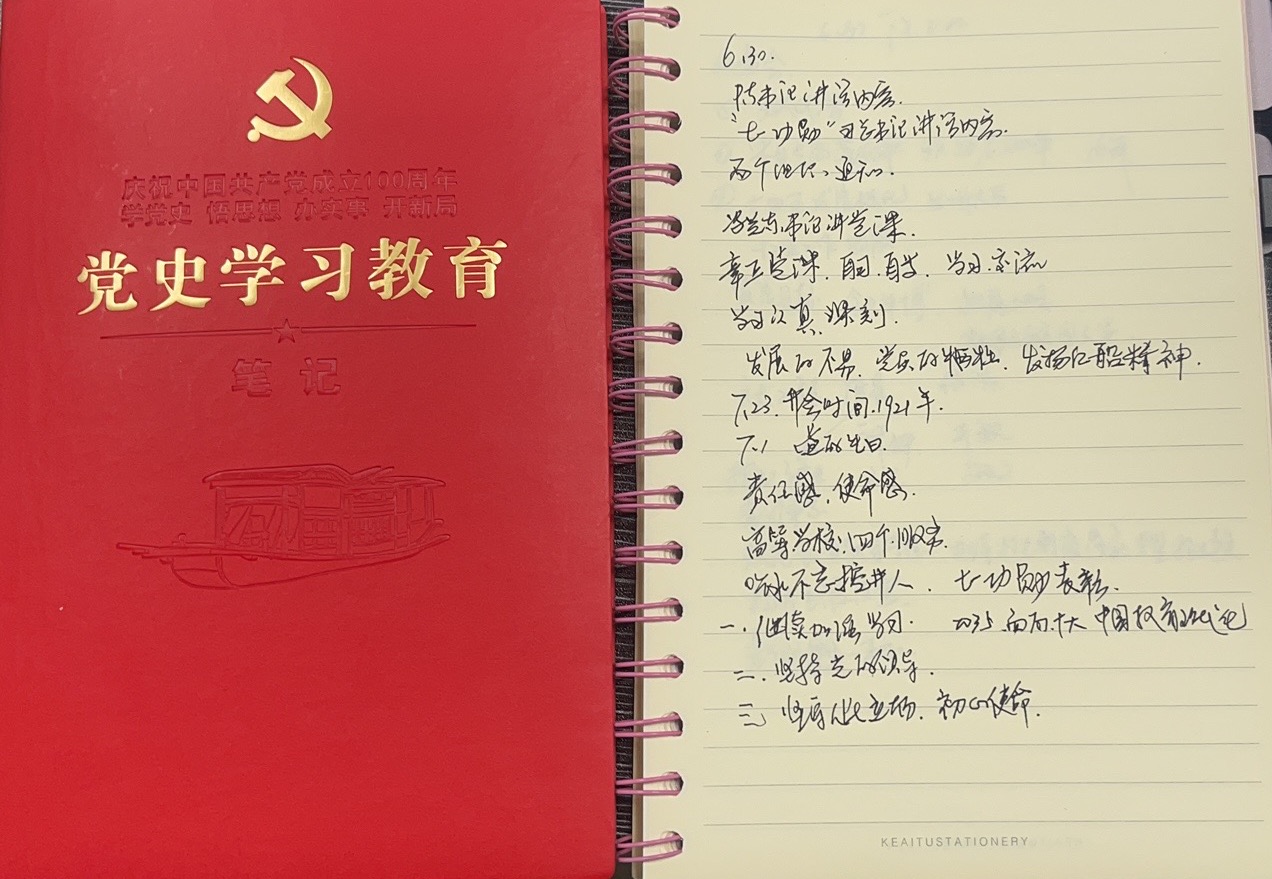 庆祝中国共产党成立100周年
学党史 悟思想 办实事 开新局
党史学习教育
笔记
6.30.
陈书记讲话内容.
"七一功勋"习总书记讲话内容.
两个通知.
书记讲党课.
自学. 学习.交流
学习认真.深刻.
发展的不易. 党员的牺牲. 发扬红船精神.
7.23. 开会时间.1921年.
7.1 党的生日.
责任感.使命感.
高等学校.四个服务.
吃水不忘挖井人. 七一功勋表彰.
一.继续加强学习. 2035 中国教育现代化
二.坚持党的领导.
三. 坚守人民立场. 初心使命.
KEAITUSTATIONERY